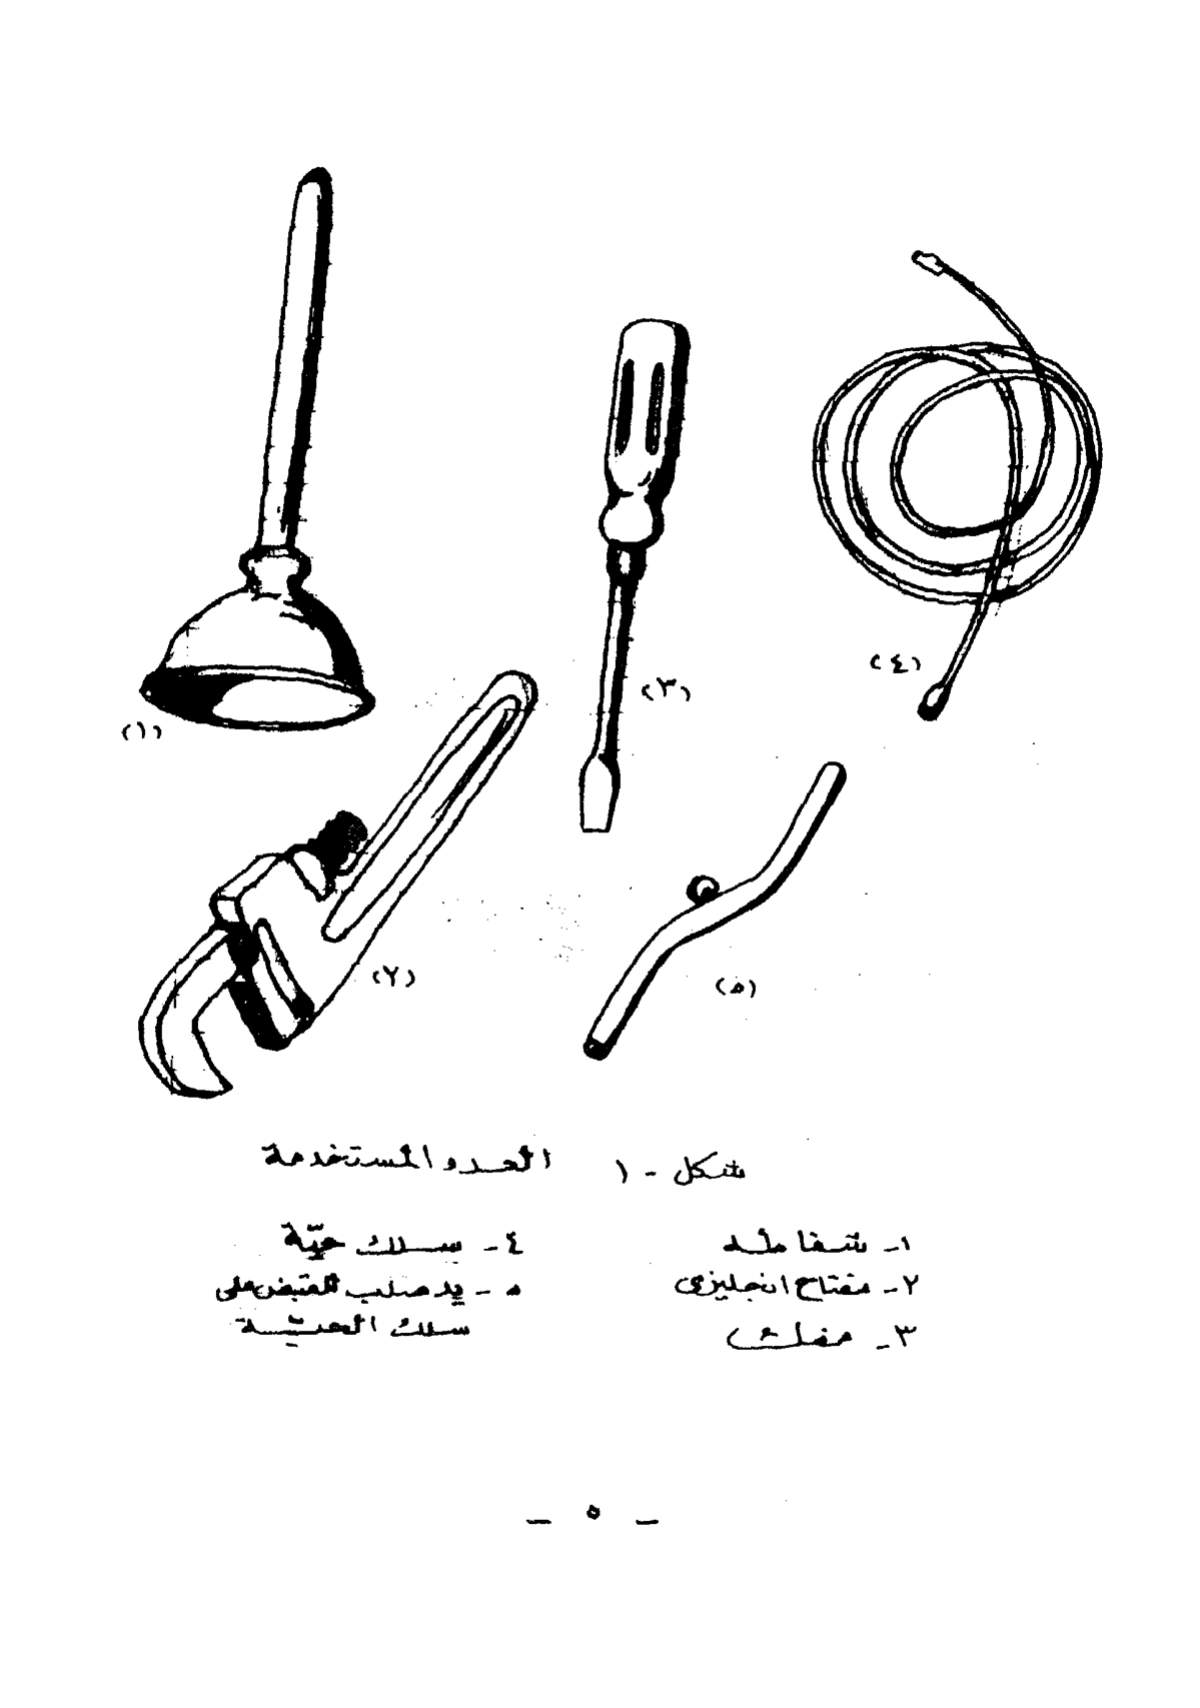 (١)
(٣)
(٤)
(٢)
(٥)
شكل - ١ العدد المستخدمة
١- شفاطة
٢- مفتاح انجليزي
٣- مفك
٤- سلك حيّة
٥- يد صلب للقبض على
سلك الحيّة
- ٥ -